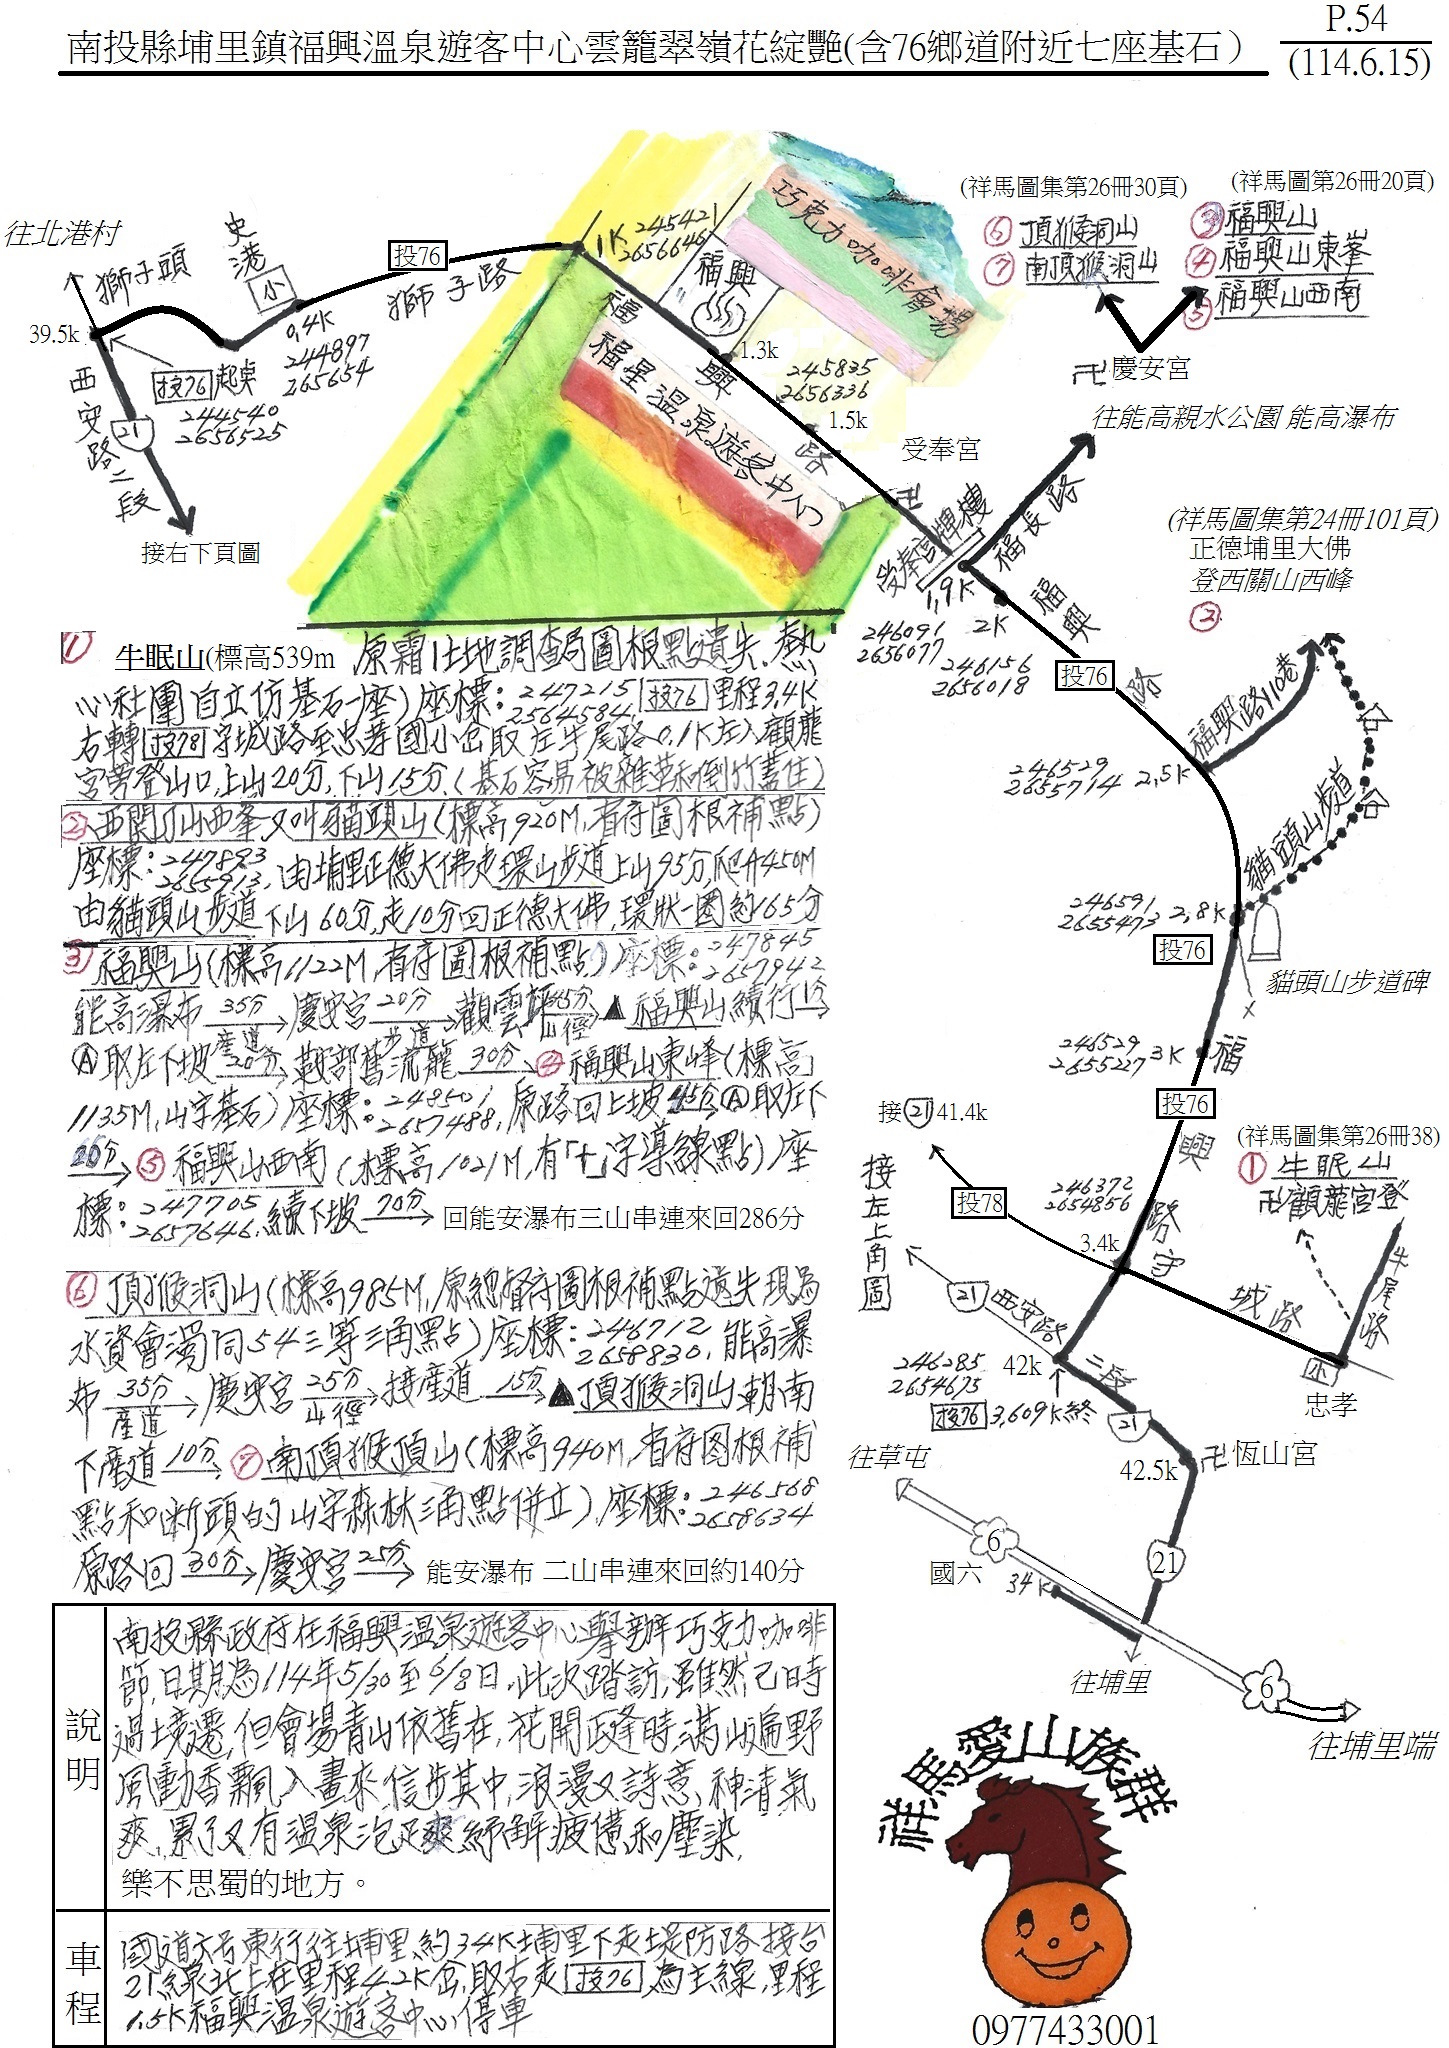 P.54
南投縣埔里鎮福興溫泉遊客中心雲籠翠嶺花綻艷(含76鄉道附近七座基石)
(114.6.15)
(祥馬圖集第26冊30頁)
⑥ 頂猴洞山
⑦ 南頂猴洞山
(祥馬圖第26冊20頁)
③ 福興山
④ 福興山東峯
⑤ 福興山西南
卍慶安宮
往能高親水公園 能高瀑布
往北港村
獅子頭
史港
小
39.5k
投76起點
244540
2656525
0.4K
244897
265654
投76
獅子路
西安路二段
21
接右下頁圖
1K
245421
2656646
福興
巧克力咖啡會場
福星溫泉遊客中心
福興路
1.3k
245835
2656336
1.5k
受奉宮
卍
受奉宮牌樓
福長路
1.9K
246091
2656077
2K
246156
2656018
福興路
投76
(祥馬圖集第24冊101頁)
正德埔里大佛
登西關山西峰
②
福興路110巷
246529
2655714
2.5K
貓頭山步道
246591
2655473
2.8K
投76
貓頭山步道碑
246529
2655227
3K
福興路
投76
接21 41.4k
接左上角圖
投78
246372
2654856
3.4k
守城路
(祥馬圖集第26冊38)
① 牛眠山
卍顧龍宮登
牛尾路
小
忠孝
21
西安路二段
42k
246285
2654675
投76 3.609K終
21
42.5k
卍恆山宮
往草屯
6
國六
34K
21
往埔里
6
往埔里端
① 牛眠山(標高539m 原霜1土地調查局圖根點遺失.熱
心社團自立仿基石一座)座標:247215 2564584 投76里程3.4K
右轉投78守城路至忠孝國小岔取左牛尾路0.1K左入顧龍
宮旁登山口,上山20分,下山15分.(基石容易被雜草和倒竹蓋住)
② 西關刀山西峯又叫貓頭山(標高920M,有府圖根補點)
座標:247893 2655913,由埔里正德大佛走環山步道上山95分,爬升450M
由貓頭山步道下山60分,走10分回正德大佛,環狀一圈約165分
③ 福興山(標高1122M,有府圖根補點)座標:247845 2657942
能高瀑布 35分 產道→慶安宮 20分 步道→觀雲坪 45分 山徑→▲福興山續行1分→
Ⓐ取左下坡 20分→戰部舊流籠 30分→④福興山東峰(標高
1135M,山字基石)座標:248501 2657488,原路回上坡 45分→Ⓐ取左下
20分→⑤福興山西南(標高1021M,有「十」字導線點)座
標:247705 2657646.續下坡 70分→回能安瀑布三山串連來回286分
⑥ 頂猴洞山(標高985M,原總督府圖根補點遺失現為
水資會濁同54三等三角點)座標:246712 2658830,能高瀑
布 35分 產道→慶安宮 25分 山徑→接產道 15分→▲頂猴洞山朝南
下產道 10分→⑦南頂猴頂山(標高940M,有府图根補
點和斷頭的山字森林三角點併立)座標:246568 2658634
原路回 30分→慶安宮 25分→能安瀑布 二山串連來回約140分
說明
南投縣政府在福興溫泉遊客中心舉辦巧克力咖啡
節,日期為114年5/30至6/8日.此次踏訪,雖然己時
過境遷,但會場青山依舊在,花開正逢時,滿山遍野
風動香飄入畫來,信步其中,浪漫又詩意,神清氣
爽,累了又有溫泉泡足紓解疲憊和塵染,
樂不思蜀的地方。
車程
國道六号東行往埔里,約34K埔里下走堤防路接台
21線北上在里程42K岔,取右走投76為主線,里程
1.5K福興溫泉遊客中心停車
祥馬愛山族群
0977433001